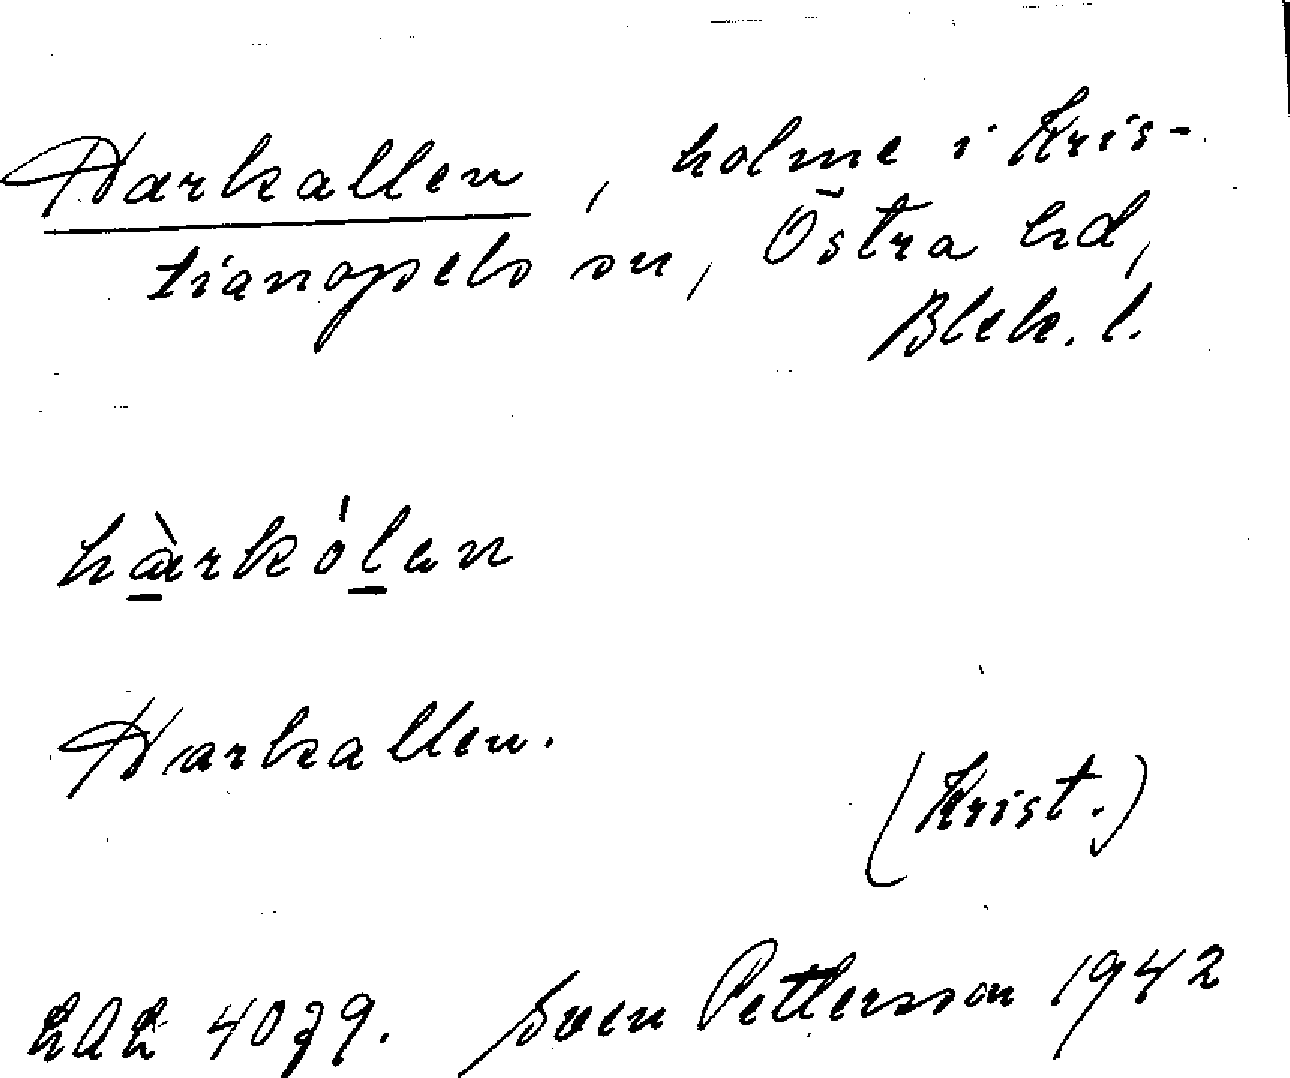 Harkallen, holme i Kris-
tianopels sn, Östra hd,
Blek. l.
hàrkólen
Harkallen.
(Krist.)
LAL 4079. Sven Pettersson 1942